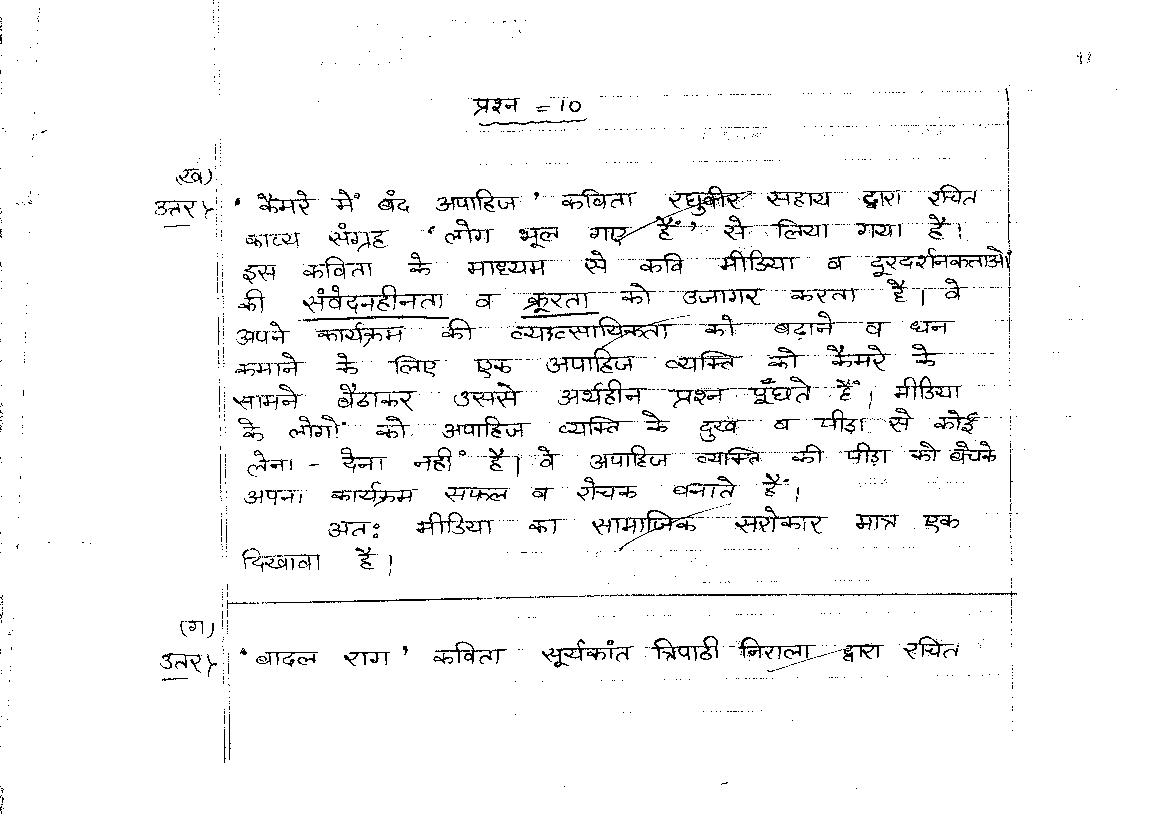 प्रश्न = 10
(ख)
उतर > ' कैमरे में बंद अपाहिज ' कविता रघुवीर सहाय द्वारा रचित
काव्य संग्रह ' लोग भूल गए हैं ' से लिया गया है।
इस कविता के माध्यम से कवि मीडिया व दूरदर्शनकताओं
की संवेदनहीनता व क्रूरता को उजागर करता है। वे
अपने कार्यक्रम की व्यावसायिकता को बढ़ाने व धन
कमाने के लिए एक अपाहिज व्यक्ति को कैमरे के
सामने बैठाकर उससे अर्थहीन प्रश्न पूँछते हैं। मीडिया
के लोगों को अपाहिज व्यक्ति के दुख व पीड़ा से कोई
लेना - देना नहीं है। वे अपाहिज व्यक्ति की पीड़ा को बेचके
अपना कार्यक्रम सफल व रोचक बनाते हैं।
अतः मीडिया का सामाजिक सरोकार मात्र एक
दिखावा है।
(ग)
उतर > ' बादल राग ' कविता सूर्यकांत त्रिपाठी निराला द्वारा रचित